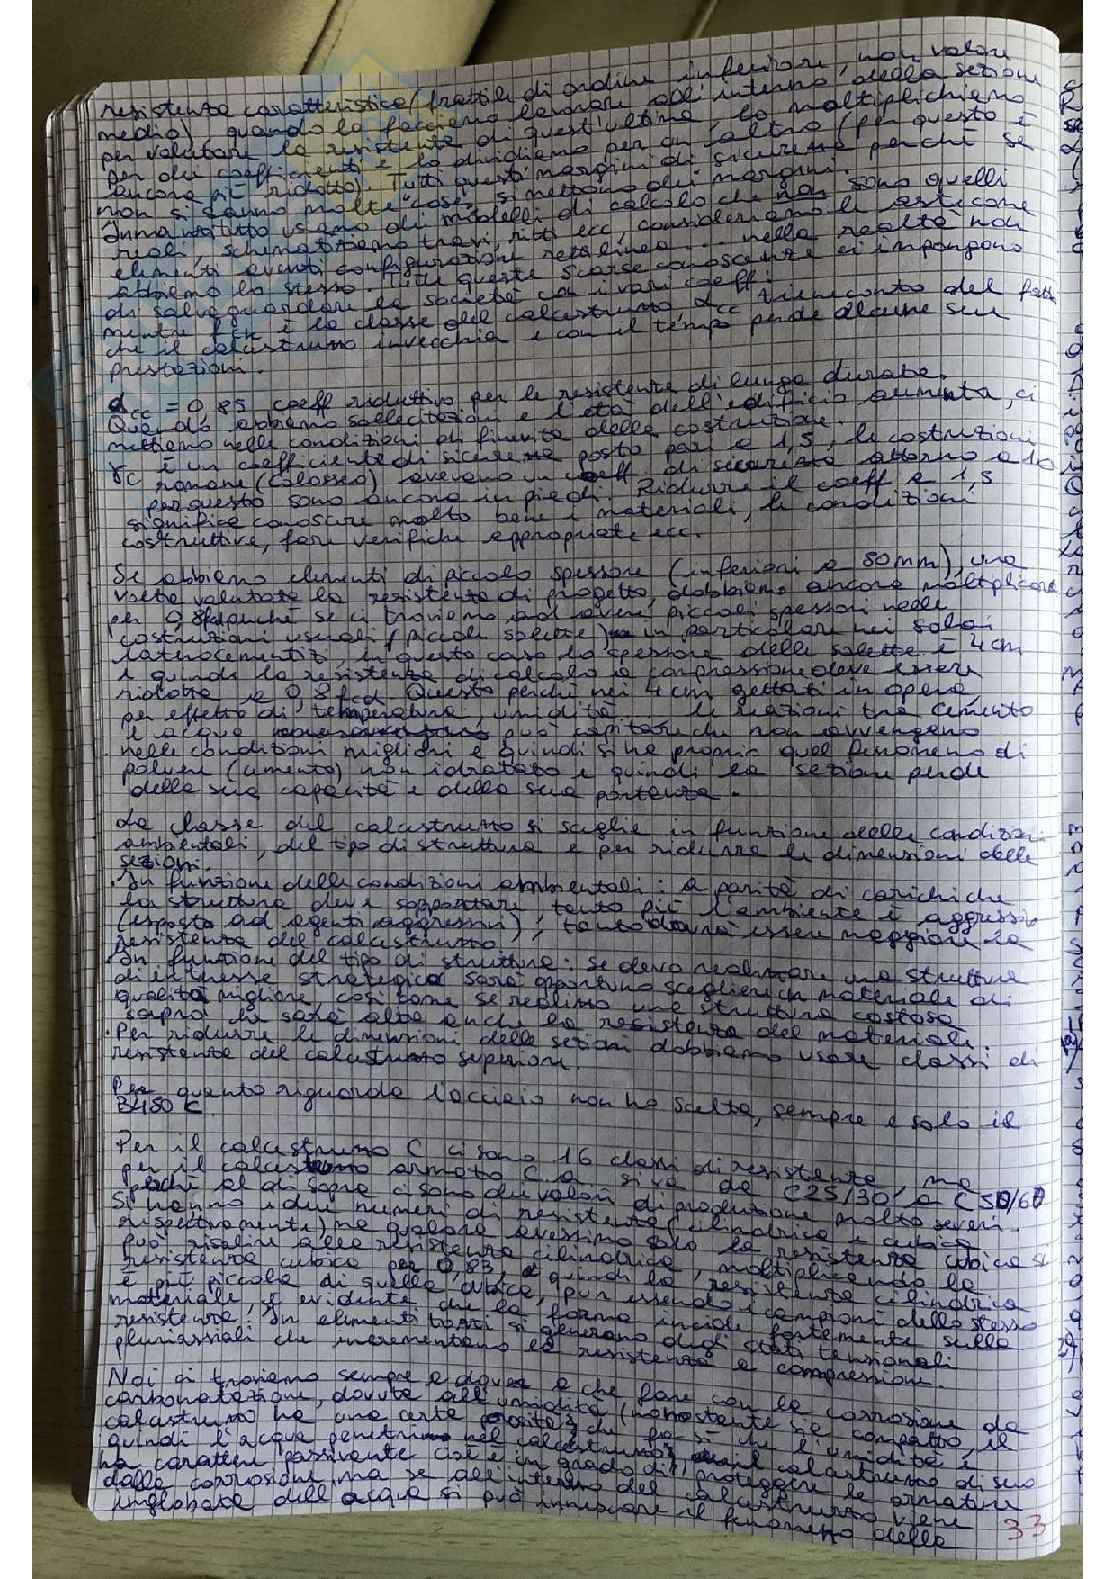 resistenza caratteristica (frattile di ordine inferiore, non valore
medio) quando lo facciamo lavorare all'interno della sezione
per valutare la resistenza di quest'ultima, lo moltiplichiamo
per dei coefficienti e lo dividiamo per un altro (per questo è
ancora più ridotto). Tutti questi margini di sicurezza perché se
non si sanno molte cose, si mettono dei margini.
Innanzitutto usiamo dei modelli di calcolo che non sono quelli
reali, schematizziamo travi, ritti ecc, consideriamo
elementi aventi configurazione rettilinea ... nella realtà non
abbiamo lo stesso. Tutte queste scarse conoscenze ci impongono
di salvaguardare la società con i vari coeff.
mentre fck è la classe del calcestruzzo αcc tiene conto del fatto
che il calcestruzzo invecchia e con il tempo perde alcune sue
prestazioni.
αcc = 0,85 coeff riduttivo per le resistenze di lunga durata.
Quando abbiamo sollecitazioni e l'età dell'edificio aumenta, ci
mettiamo nelle condizioni di finita della costruzione.
γc è un coefficiente di sicurezza posto pari a 1,5, le costruzioni
romane (Colosseo) avevano un coeff. di sicurezza attorno a 10
per questo sono ancora in piedi. Ridurre il coeff a 1,5
significa conoscere molto bene i materiali, le condizioni
costruttive, fare verifiche appropriate ecc.
Se abbiamo elementi di piccolo spessore (inferiori a 50mm), una
volta valutata la resistenza di progetto, dobbiamo ancora moltiplicare
per 0,8 perché se ci troviamo ad avere piccoli spessori nelle
costruzioni usuali (piccole solette) in particolare nei solai
laterocementizi, in questo caso lo spessore delle solette è 4cm
e quindi la resistenza di calcolo a compressione deve essere
ridotta a 0,8 fcd. Questo perché nei 4cm gettati in opera,
per effetto di temperatura, umidità le reazioni tra cemento
e acqua può capitare che non avvengano
nelle condizioni migliori e quindi si ha proprio quel fenomeno di
polvere (cemento) non idratato e quindi la sezione perde
della sua capacità e della sua portanza.
La classe del calcestruzzo si sceglie in funzione delle condizioni
ambientali, del tipo di struttura e per ridurre le dimensioni delle
sezioni.
· In funzione delle condizioni ambientali: a parità di carichi che
la struttura deve sopportare, tanto più l'ambiente è aggressivo
(esposto ad agenti aggressivi), tanto dovrà essere maggiore la
resistenza del calcestruzzo.
· In funzione del tipo di struttura: se devo realizzare una struttura
di interesse strategico sarà opportuno scegliere un materiale di
qualità migliore, così come se realizzo una struttura costosa
saprò che sarà alta anche la resistenza del materiale.
· Per ridurre le dimensioni delle sezioni dobbiamo usare classi di
resistenza del calcestruzzo superiori.
Per quanto riguarda l'acciaio non ho scelta, sempre e solo il
B450 C
Per il calcestruzzo C ci sono 16 classi di resistenza, ma
per il calcestruzzo armato C.a. si va da C25/30 a C50/60
perché al di sopra ci sono dei valori di produzione molto severi.
Si hanno i due numeri di resistenza (cilindrica e cubica
rispettivamente) ma qualora avessimo solo la resistenza cubica si
può risalire alla resistenza cilindrica, moltiplicando la
resistenza cubica per 0,83, e quindi la resistenza cilindrica
è più piccola di quella cubica, pur essendo i campioni dello stesso
materiale, è evidente che la forma incide fortemente sulla
resistenza. In elementi tozzi si generano degli stati tensionali
pluriassiali che incrementano la resistenza a compressione.
Noi ci troviamo sempre a dover a che fare con la corrosione da
carbonatazione, dovuta all'umidità (nonostante sia compatto, il
calcestruzzo ha una certa porosità che fa sì che l'umidità e
quindi l'acqua penetrino nel calcestruzzo), il calcestruzzo di suo
ha carattere passivante cioè è in grado di proteggere le armature
dalla corrosione ma se all'interno del calcestruzzo viene
inglobata dell'acqua si può innescare il fenomeno della
33